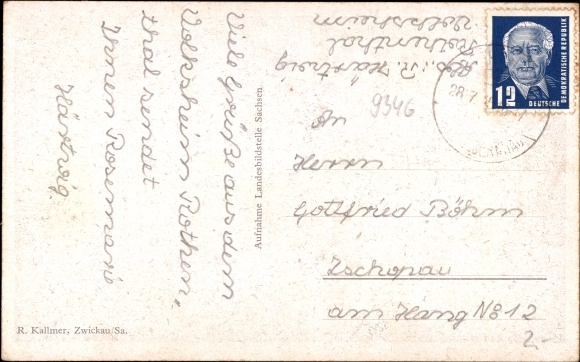 Viele Grüße aus dem
Volksheim Rothen,
thal sendet
Ihnen Rosemarie
Härtwig.
Abs.: R. Härtwig
Rothenthal
Volksheim
Aufnahme Landesbildstelle Sachsen.
R. Kallmer, Zwickau Sa.
9346
12
DEUTSCHE
DEMOKRATISCHE REPUBLIK
28.7
An
Herrn
Gottfried Böhm
Zschopau
am Hang No 12
2,-